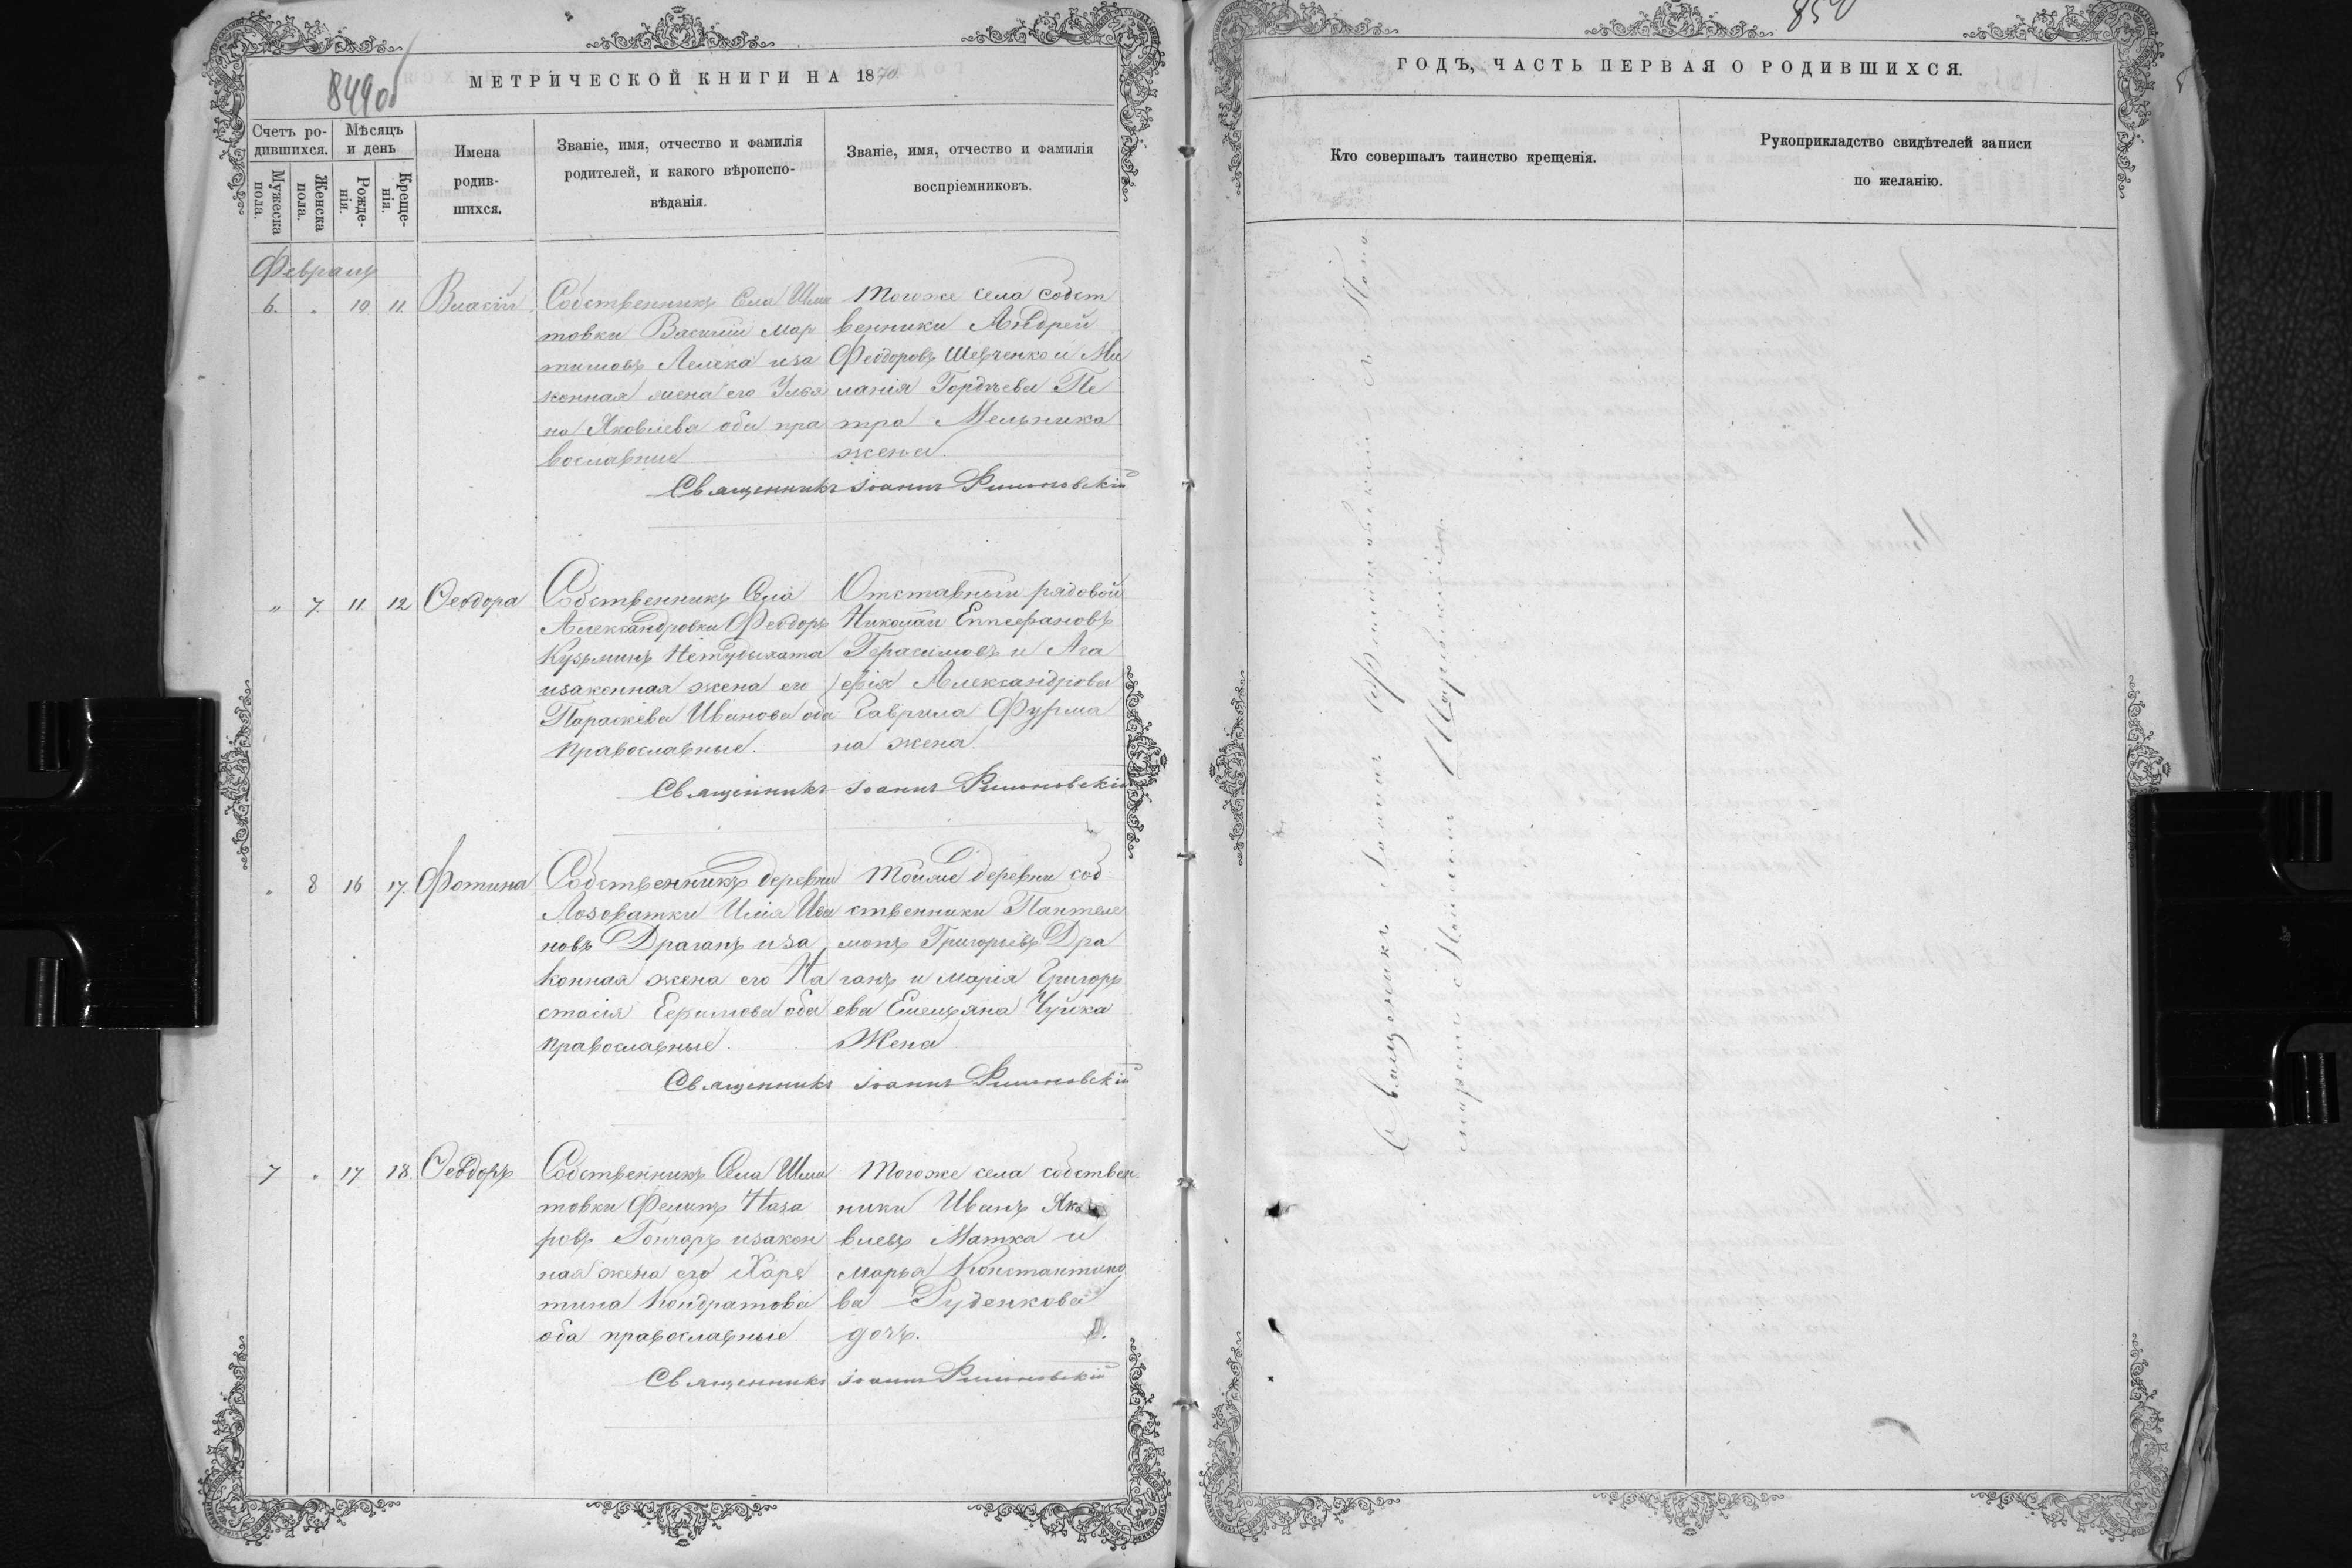 849об
МЕТРИЧЕСКОЙ КНИГИ НА 1870.
Счетъ ро-
дившихся.
Мѣсяцъ
и день
Мужеска
пола.
Женска
пола.
Рожде-
нія.
Креще-
нія.
Имена
родив-
шихся.
Званіе, имя, отчество и фамилія
родителей, и какого вѣроиспо-
вѣданія.
Званіе, имя, отчество и фамилія
воспріемниковъ.
Февраль
6. " 10 11. Власій
Собственникъ Села Шма
товки Василій Мар
тиновъ Лелека иза
конная жена его Улья
на Яковлева оба пра
вославные
Тогоже села собст
венники Андрей
Феодоровъ Шевченко и Ме
ланія Гордѣева Пе
тра Мельника
жена.
Священникъ Іоаннъ
" 7. 11. 12 Феодора
Собственникъ Села
Александровки Феодоръ
Кузьминъ Нетудыхата
изаконная жена его
Параскева Иванова оба
православные.
Отставный рядовой
Николай Епифановъ
Герасимовъ и Ага
фія Александрова
Гаврила Фурма
на жена.
Священникъ Іоаннъ
" 8 16 17. Фотина
Собственникъ деревни
Лозоватки Илія Ива
новъ Драганъ иза
конная жена его На
стасія Ефимова оба
православные.
Тойже деревни соб
ственники Пантеле
монъ Григорьевъ Дра
ганъ и Марія Григорь
ева Емельяна Чуйка
Жена
Священникъ Іоаннъ
7 " 17 18. Феодоръ
Собственникъ Села Шма
товки Филипъ Наза
ровъ Гончаръ изакон
ная жена его Харе
тина Кондратова
оба православные
Тогоже села собствен
ники Иванъ Яко
влевъ Матка и
Марья Константино
ва Руденкова
дочь.
Священникъ Іоаннъ
850
ГОДЪ, ЧАСТЬ ПЕРВАЯ О РОДИВШИХСЯ.
Кто совершалъ таинство крещенія.
Рукоприкладство свидѣтелей записи
по желанію.
Священникъ Іоаннъ